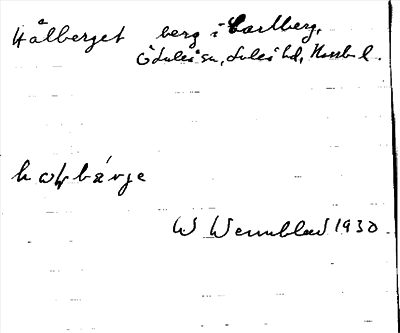 Hålberget berg i Karlberg,
Ö Luleå sn, Luleå hd, Norrb l.
W Wennblad 1930